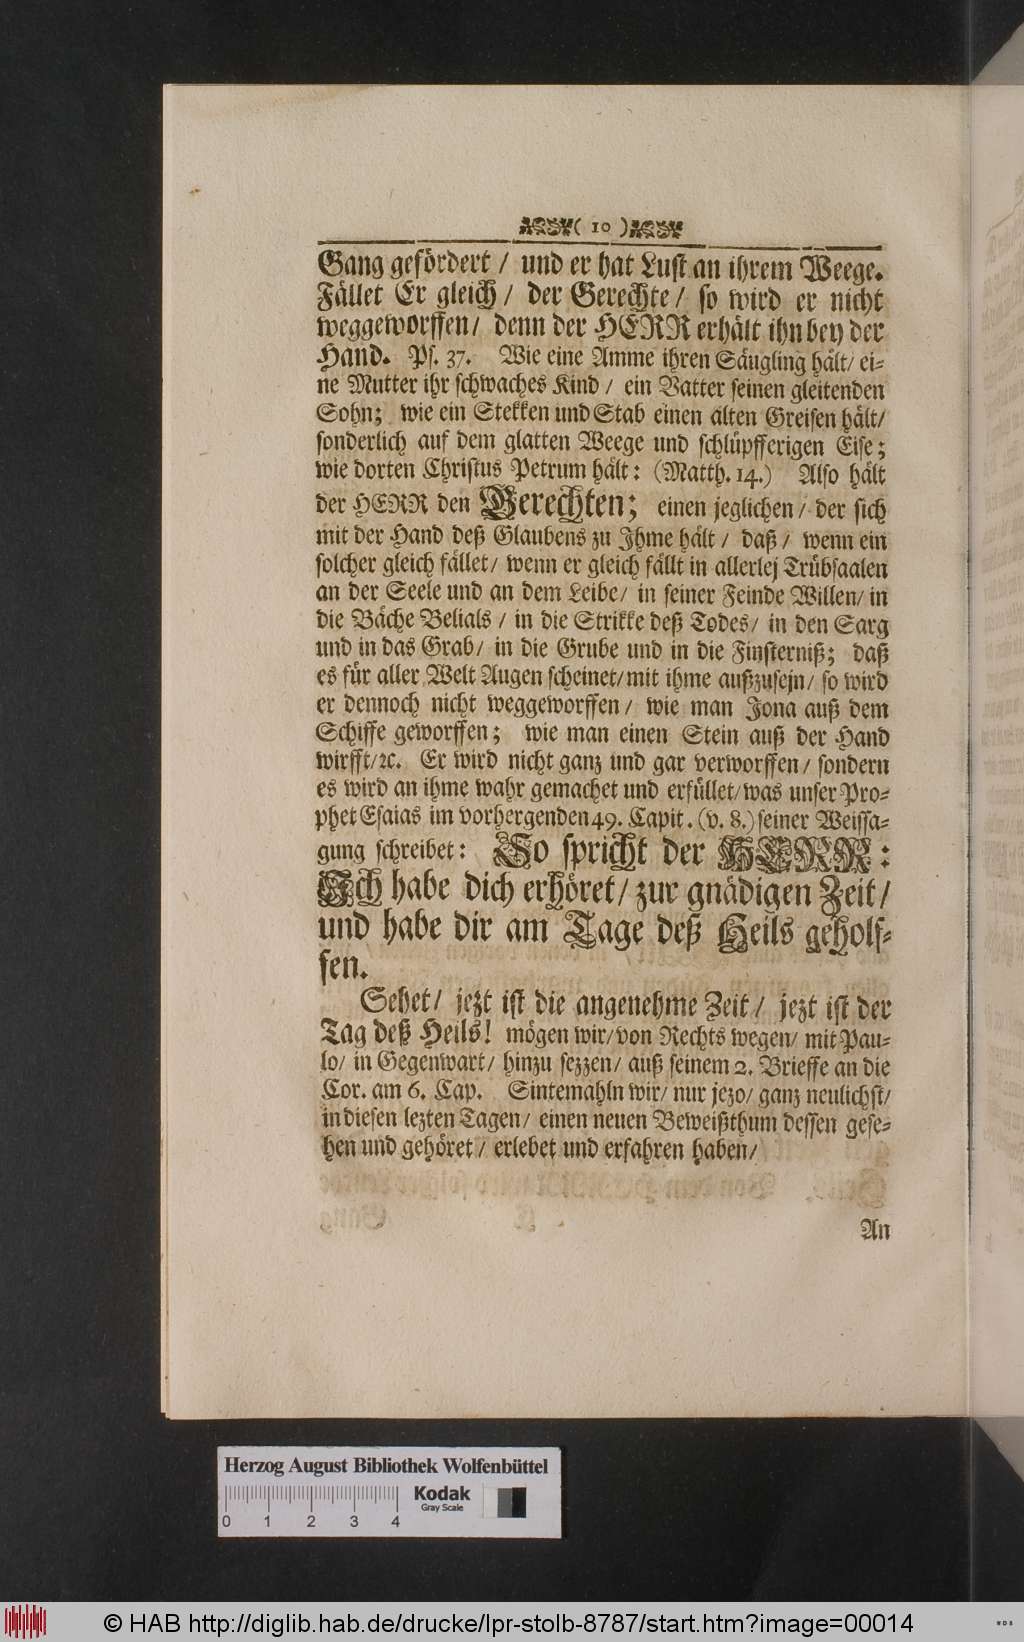 ( 10 )
Gang gefördert / und er hat Lust an ihrem Weege.
Fället Er gleich / der Gerechte / so wird er nicht
weggeworffen / denn der HERR erhält ihn bey der
Hand. Ps. 37. Wie eine Amme ihren Säugling hält / ei-
ne Mutter ihr schwaches Kind / ein Vatter seinen gleitenden
Sohn; wie ein Stekken und Stab einen alten Greisen hält /
sonderlich auf dem glatten Weege und schlüpfferigen Eise;
wie dorten Christus Petrum hält: (Matth. 14.) Also hält
der HERR den Gerechten; einen jeglichen / der sich
mit der Hand deß Glaubens zu Ihme hält / daß / wenn ein
solcher gleich fället / wenn er gleich fällt in allerlej Trübsaalen
an der Seele und an dem Leibe / in seiner Feinde Willen / in
die Bäche Belials / in die Strikke deß Todes / in den Sarg
und in das Grab / in die Grube und in die Finsterniß; daß
es für aller Welt Augen scheinet / mit ihme außzusejn / so wird
er dennoch nicht weggeworffen / wie man Jona auß dem
Schiffe geworffen; wie man einen Stein auß der Hand
wirfft / ꝛc. Er wird nicht ganz und gar verworffen / sondern
es wird an ihme wahr gemachet und erfüllet / was unser Pro-
phet Esaias im vorhergenden 49. Capit. (v. 8.) seiner Weissa-
gung schreibet: So spricht der HERR:
Ich habe dich erhöret / zur gnädigen Zeit /
und habe dir am Tage deß Heils geholf-
fen.
Sehet / jezt ist die angenehme Zeit / jezt ist der
Tag deß Heils! mögen wir / von Rechts wegen / mit Pau-
lo / in Gegenwart / hinzu sezzen / auß seinem 2. Brieffe an die
Cor. am 6. Cap. Sintemahln wir / nur jezo / ganz neulichst /
in diesen lezten Tagen / einen neuen Beweißthum dessen gese-
hen und gehöret / erlebet und erfahren haben /
An
Herzog August Bibliothek Wolfenbüttel
Kodak
Gray Scale
0 1 2 3 4
© HAB http://diglib.hab.de/drucke/lpr-stolb-8787/start.htm?image=00014